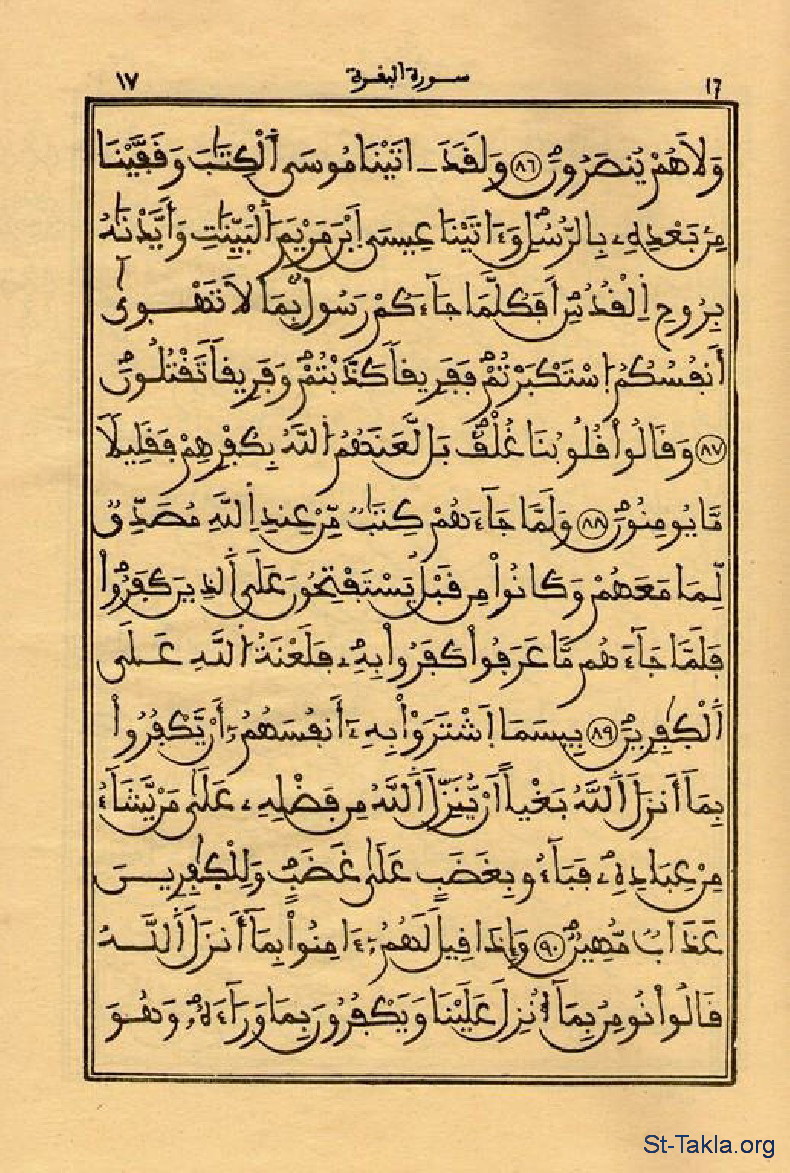 ١٧ سورة البقرة ١٦
وَلَا هُمْ يُنصَرُونَ ٨٦ وَلَقَدَ ـ اتَيْنَا مُوسَى اَ۬لْكِتَٰبَ وَقَفَّيْنَا
مِنۢ بَعْدِهِۦ بِالرُّسُلِ وَءَاتَيْنَا عِيسَى اَ۪بْنَ مَرْيَمَ اَ۬لْبَيِّنَٰتِ وَأَيَّدْنَٰهُ
بِرُوحِ اِ۬لْقُدُسِ أَفَكُلَّمَا جَآءَكُمْ رَسُولُۢ بِمَا لَا تَهْوِىٰٓ
أَنفُسُكُمُ اُ۪سْتَكْبَرْتُمْ فَفَرِيقاٗ كَذَّبْتُمْ وَفَرِيقاٗ تَقْتُلُونَ
٨٧ وَقَالُواْ قُلُوبُنَا غُلْفُۢ بَل لَّعَنَهُمُ اُ۬للَّهُ بِكُفْرِهِمْ فَقَلِيلاٗ
مَّا يُومِنُونَ ٨٨ وَلَمَّا جَآءَهُمْ كِتَٰبٞ مِّنْ عِندِ اِ۬للَّهِ مُصَدِّقٞ
لِّمَا مَعَهُمْ وَكَانُواْ مِن قَبْلُ يَسْتَفْتِحُونَ عَلَى اَ۬لذِينَ كَفَرُواْ
فَلَمَّا جَآءَهُم مَّا عَرَفُواْ كَفَرُواْ بِهِۦ فَلَعْنَةُ اُ۬للَّهِ عَلَى
اَ۬لْكٰ۪فِرِينَ ٨٩ بِيسَمَا اَ۪شْتَرَوْاْ بِهِۦٓ أَنفُسَهُمُۥٓ أَنْ يَّكْفُرُواْ
بِمَآ أَنزَلَ اَ۬للَّهُ بَغْياً اَنْ يُّنَزِّلَ اَ۬للَّهُ مِن فَضْلِهِۦ عَلَىٰ مَنْ يَّشَآءُ
مِنْ عِبَادِهِۦ فَبَآءُو بِغَضَبٍ عَلَىٰ غَضَبٖ وَلِلْكٰ۪فِرِينَ
عَذَابٞ مُّهِينٞ ٩٠ وَإِذَا قِيلَ لَهُمُۥٓ ءَامِنُواْ بِمَآ أَنزَلَ اَ۬للَّهُ
قَالُواْ نُومِنُ بِمَآ أُنزِلَ عَلَيْنَا وَيَكْفُرُونَ بِمَا وَرَآءَهُۥ وَهُوَ
St-Takla.org